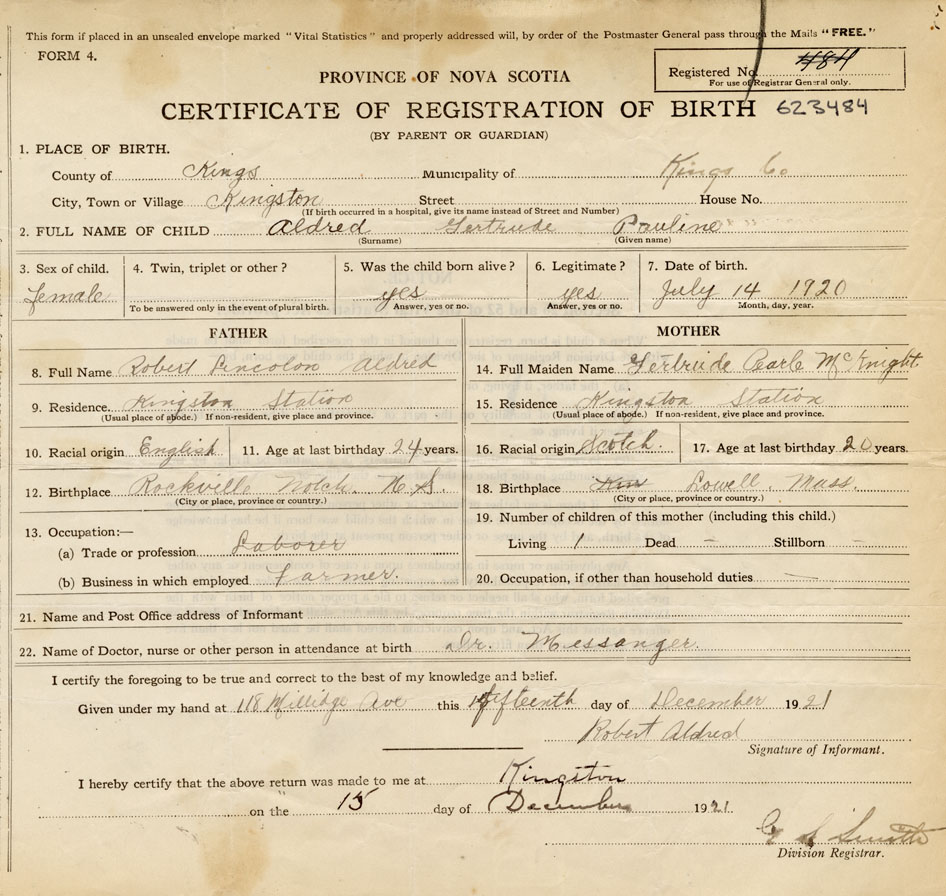 This form if placed in an unsealed envelope marked "Vital Statistics" and properly addressed will, by order of the Postmaster General pass through the Mails "FREE."
FORM 4.
PROVINCE OF NOVA SCOTIA
Registered No. 484
For use of Registrar General only.
CERTIFICATE OF REGISTRATION OF BIRTH 623484
(BY PARENT OR GUARDIAN)
1. PLACE OF BIRTH.
County of Kings Municipality of Kings Co
City, Town or Village Kingston Street House No.
(If birth occurred in a hospital, give its name instead of Street and Number)
2. FULL NAME OF CHILD Aldred Gertrude Pauline
(Surname) (Given name)
3. Sex of child. 4. Twin, triplet or other? 5. Was the child born alive? 6. Legitimate? 7. Date of birth.
female yes yes July 14 1920
To be answered only in the event of plural birth. Answer, yes or no. Answer, yes or no. Month, day, year.
FATHER MOTHER
8. Full Name Robert Lincolon Aldred 14. Full Maiden Name Gertrude Earle McKnight
9. Residence. Kingston Station 15. Residence Kingston Station
(Usual place of abode.) If non-resident, give place and province. (Usual place of abode.) If non-resident, give place and province.
10. Racial origin English 11. Age at last birthday 24 years. 16. Racial origin Scotch. 17. Age at last birthday 20 years.
12. Birthplace Rockville Notch. N.S. 18. Birthplace Lowell, Mass.
(City or place, province or country.) (City or place, province or country.)
13. Occupation:— 19. Number of children of this mother (including this child.)
(a) Trade or profession Laborer Living 1 Dead – Stillborn –
(b) Business in which employed Farmer. 20. Occupation, if other than household duties —
21. Name and Post Office address of Informant
22. Name of Doctor, nurse or other person in attendance at birth Dr. Messanger.
I certify the foregoing to be true and correct to the best of my knowledge and belief.
Given under my hand at 118 Millidge Ave this fifteenth day of December 1921
Robert Aldred
Signature of Informant.
I hereby certify that the above return was made to me at Kingston
on the 15 day of December 1921.
Smith
Division Registrar.